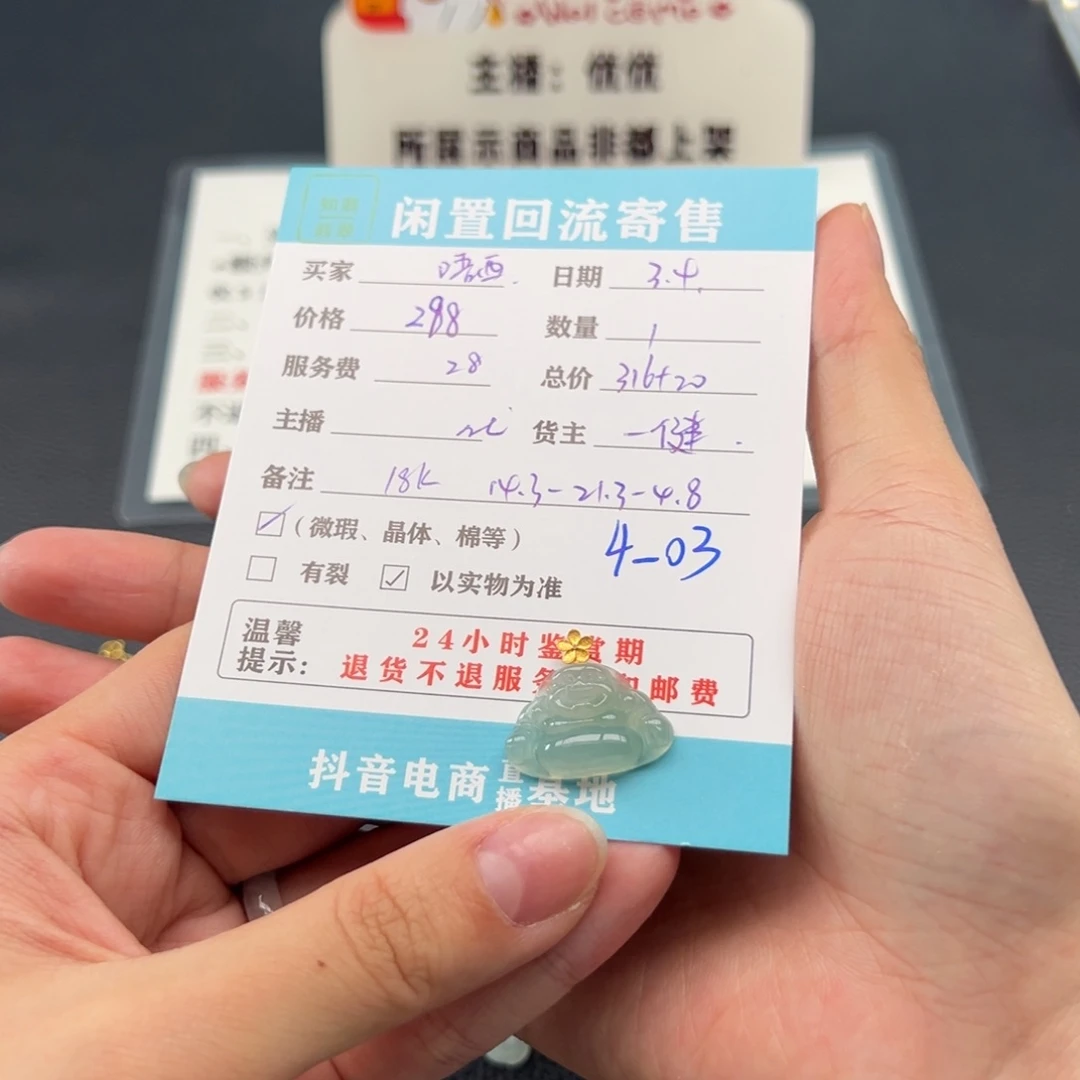 主播：优优
所展示商品非都上架
闲置回流寄售
买家 日期 3.4.
价格 288 数量 1
服务费 28 总价 316+20
主播 货主 一健.
备注 18K 14.3-21.3-4.8
（微瑕、晶体、棉等）
4-03
有裂 以实物为准
温馨提示：
24小时鉴赏期
退货不退服务 邮费
抖音电商直播基地